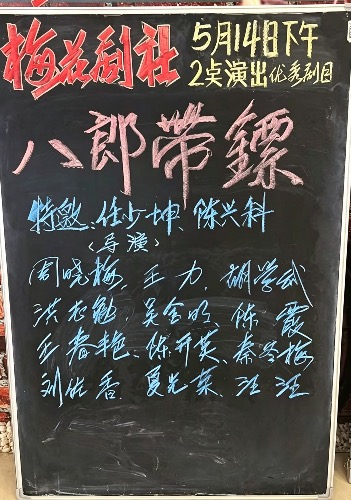 梅花剧社
5月14日下午
2点演出优秀剧目
八郎带镖
特邀、任少坤、陈兴科
(导演)
周晓梅、王力、胡学武
洪志勉、吴全明、陈霞
王春艳、陈开英、秦冬梅
刘佑香、夏光荣、汪汪